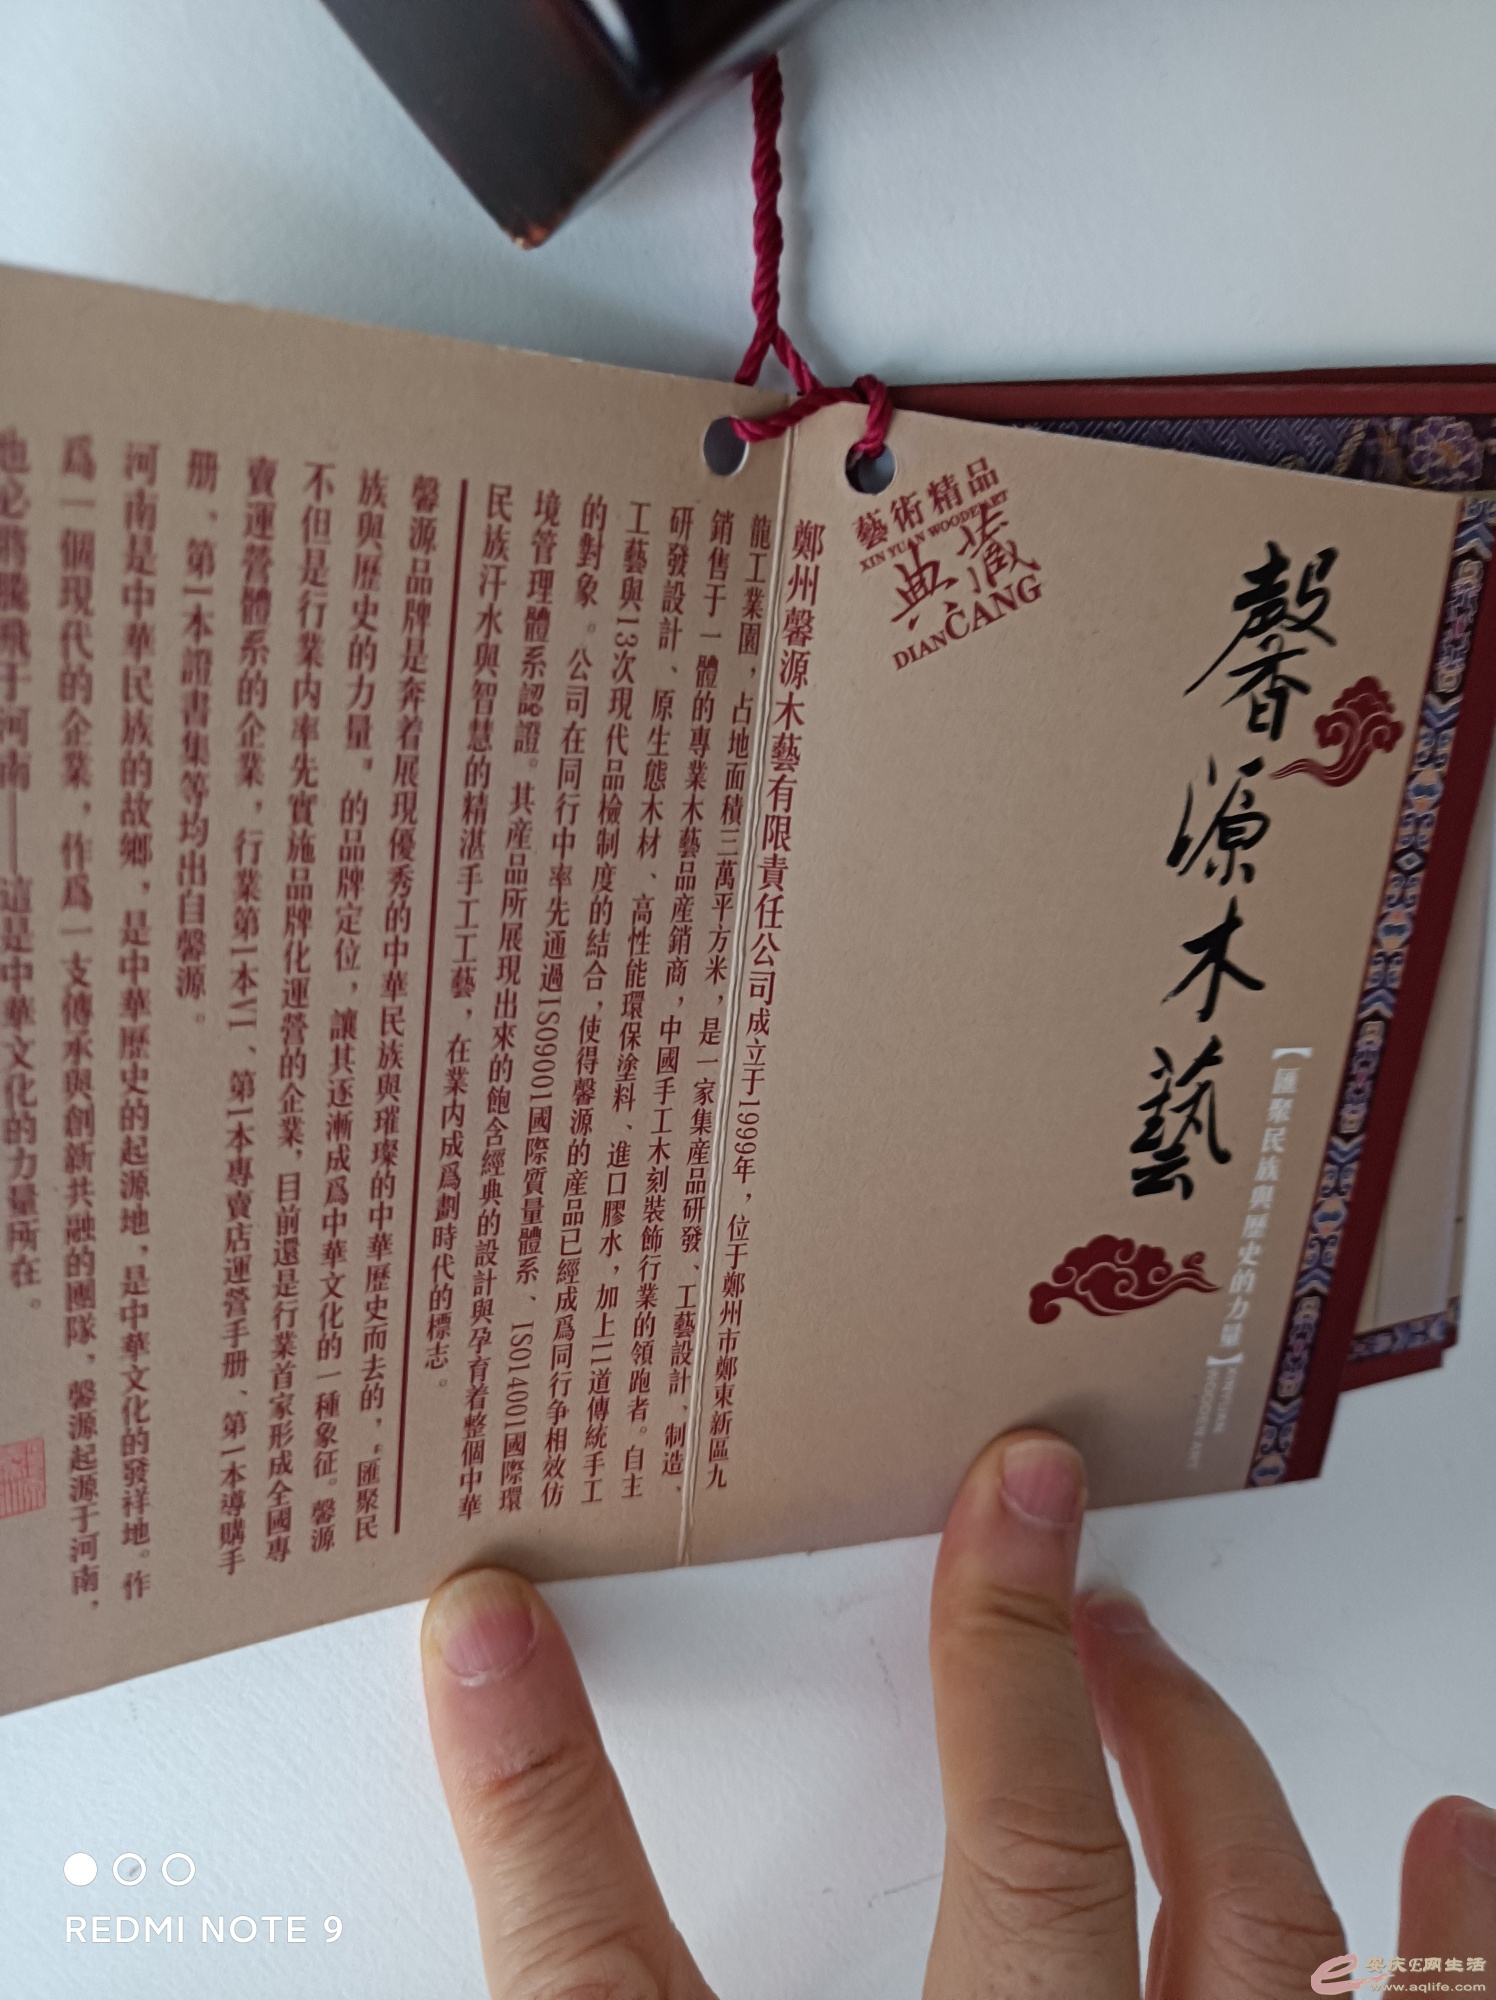 馨源木藝
【匯聚民族與歷史的力量】
XINYUAN
WOODEN ART
藝術精品
XIN YUAN WOODEN ART
典藏
DIANCANG
鄭州馨源木藝有限責任公司成立于1999年，位于鄭州市鄭東新區九
龍工業園，占地面積三萬平方米，是一家集産品研發、工藝設計、制造、
銷售于一體的專業木藝品産銷商，中國手工木刻裝飾行業的領跑者。自主
研發設計、原生態木材、高性能環保塗料、進口膠水，加上11道傳統手工
工藝與13次現代品檢制度的結合，使得馨源的産品已經成爲同行争相效仿
的對象。公司在同行中率先通過ISO9001國際質量體系、ISO14001國際環
境管理體系認證。其産品所展現出來的飽含經典的設計與孕育着整個中華
民族汗水與智慧的精湛手工工藝，在業内成爲劃時代的標志。
馨源品牌是奔着展現優秀的中華民族與璀璨的中華歷史而去的，“匯聚民
族與歷史的力量”的品牌定位，讓其逐漸成爲中華文化的一種象征。馨源
不但是行業内率先實施品牌化運營的企業，目前還是行業首家形成全國專
賣運營體系的企業，行業第1本VI、第1本專賣店運營手册、第1本導購手
册、第1本證書集等均出自馨源。
河南是中華民族的故鄉，是中華歷史的起源地，是中華文化的發祥地。作
爲一個現代的企業，作爲一支傳承與創新共融的團隊，馨源起源于河南，
也必將騰飛于河南——這是中華文化的力量所在。
REDMI NOTE 9
安庆E网生活
www.aqlife.com